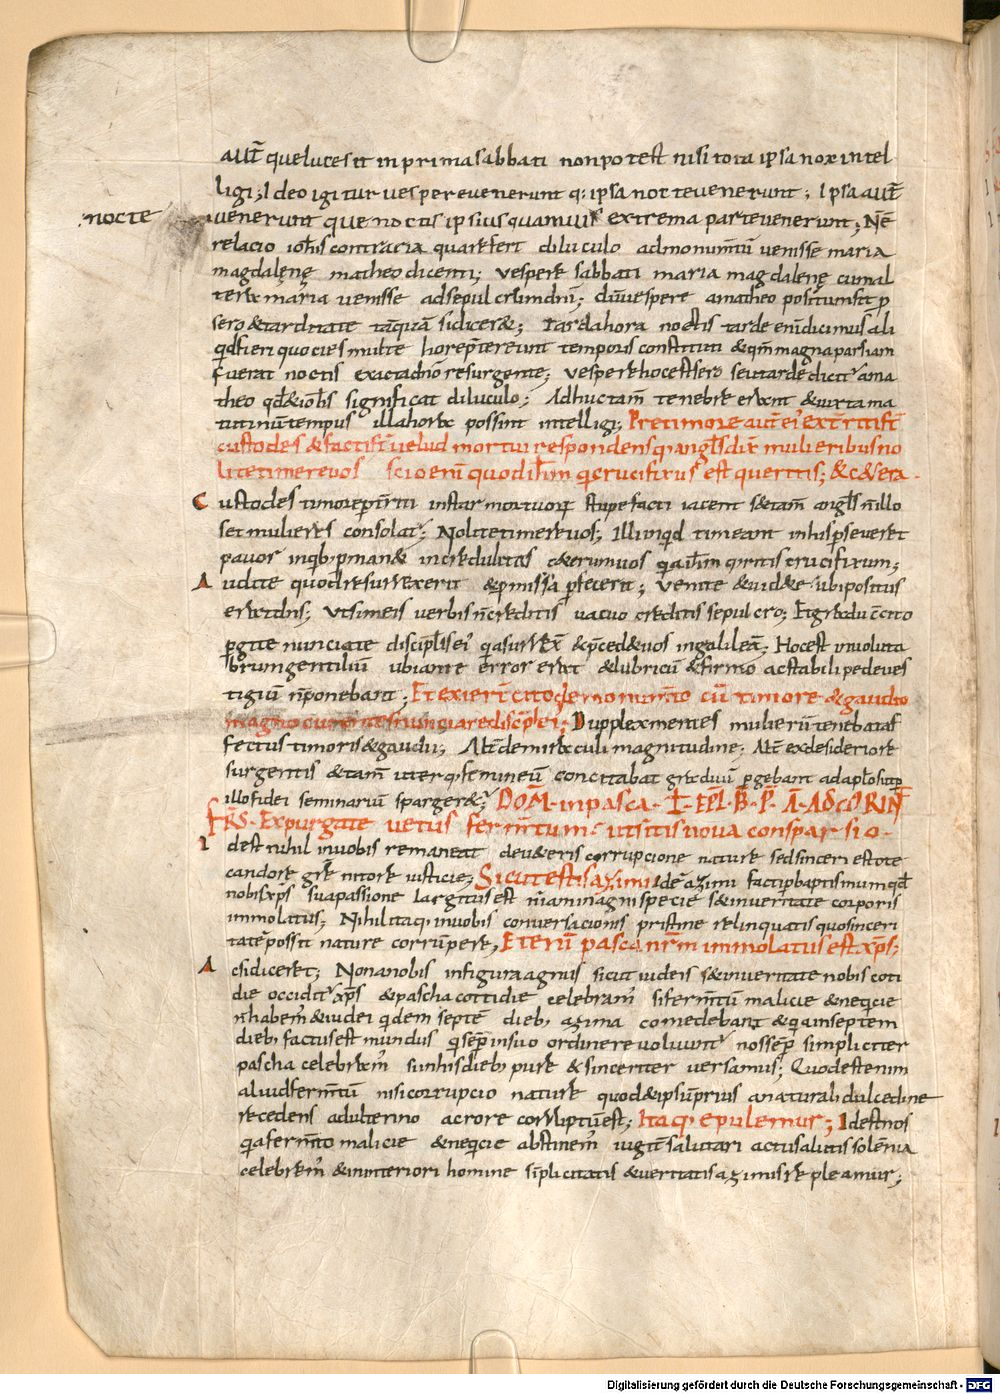 aut̅ que lucescit in prima sabbati non potest nisi tota ipsa nox intel
ligi; Ideo igitur vespere venerunt q; ipsa nocte venerunt; Ipsa aut̅
nocte
venerunt que noctis ipsius quamvis extrema parte venerunt; Ne̅
relacio ioh̅is contraria quare fert diluculo ad monum̅tu̅ venisse maria
magdalenę matheo dicenti; vespere sabbati maria magdalenę cum al
tera maria venisse ad sepulcru̅ dn̅i; du̅ vespere a matheo positum sit p̱
sero & tarditate ta̅qua̅ si dicer&; Tarda hora noctis tarde eni̅ dicimus ali
qd fieri quocies multe hore p̱tereunt temporis constituti & qm̅ magna pars iam
fuerat noctis exacta dn̅o resurgente; vespere hoc est sero seu tarde dicit᷑ a ma
theo qd̅ & ioh̅is significat diluculo; Adhuc tam̅ tenebre erant & iuxta ma
tutinu̅ tempus illa hora possint intelligi; Pre timore aut̅ ei᷒ ext̅riti s̅t
custodes & facti s̅t velud mortui respondens q; angl̅s dix̅ mulieribus no
lite timere vos scio eni̅ quod ih̅m q crucifixus est queritis; & c&era.
Custodes timore p̱territi instar mortuor̅ stupefacti iacent s& tam̅ angl̅s n̅ illo
s et mulieres consolat᷑; Nolite timere vos; Illi inqd timeant in his p̱severet
pavor in qb; p̱man& incredulitas c&erum vos q a ih̅m qritis crucifixum;
Audite quod resurrexerit & p̱missa p̱fecerit; venite & vid&e ubi positus
erat dn̅s; ut si meis verbis n̅ creditis vacuo creditis sepulcro; Et gradu c̅cito
p̱gite nunciate discipl̅is ei᷒ qa surrex̅ & p̱ced& vos in galilea̅; Hoc est in voluta
brum gentiliu̅ ubi ante error erat & lubricu̅ & firmo ac stabili pede ves
tigiu̅ n̅ ponebant. Et exier̅t cito de monum̅to cu̅ timore & gaudio
magno currentes nunciare discipl̅is ei᷒; Dupplex mentes mulieru̅ tenebat af
fectus timoris & gaudii; Alt̅ de miraculi magnitudine; Alt̅ ex desiderio re
surgentis & tam̅ uterq; femineu̅ concitabat gradu̅ p̱gebant ad apl̅os ut p̱
illos fidei seminariu̅ sparger&᷑; DOM̅ in pasca. L̅ EPL̅ B̅ P̅ A̅ AD CORIN̅
FR̅S. Expurgate vetus ferm̅tum: ut sitis nova consparsio.
Idest nihil in vobis remaneat dev&eris corrupcione nature sed sinceri estote
candore gr̅e nitore iusticie; Sicut estis azimi Ide̅ azimi facti p̱ baptismum qd̅
nobis xp̅s sua passione largitus est n̅ iam in agni specie s& in veritate corporis
immolatus; Nihil itaq; in vobis conversacionis pristine relinquatis quo sinceri
tate̅ possit nature corru̅pere; Etenim pasca nr̅m immolatus est xp̅s;
Ac si diceret; Non a nobis in figura agnus sicut iudeis s& in veritate nobis coti
die occidit᷑ xp̅s & pascha cottidie celebram᷒ si ferm̅tu̅ malicie & neqcie
n̅ habem᷒ & iudei qdem septe̅ dieb; azima comedebant & qa in septem
dieb; factus est mundus q sep̅ in suo ordine revolvunt᷑ nos sep̅ simpliciter
pascha celebrem᷒ sun his dieb; pure & sinceriter versamus; Quod est enim
aliud ferm̅tu̅ nisi corrupcio nature quod & ipsu̅ prius a naturali dulcedine
recedens adulterino acrore corruptu̅ est; Itaq; epulemur; Idest nos
qa ferm̅to malicie & neqcie abstinem᷒ iugit̅ salutari actu salutis sole̅nia
celebrem᷒ & in interiori homine si̅plicitatis & veritatis azimis repleamur;